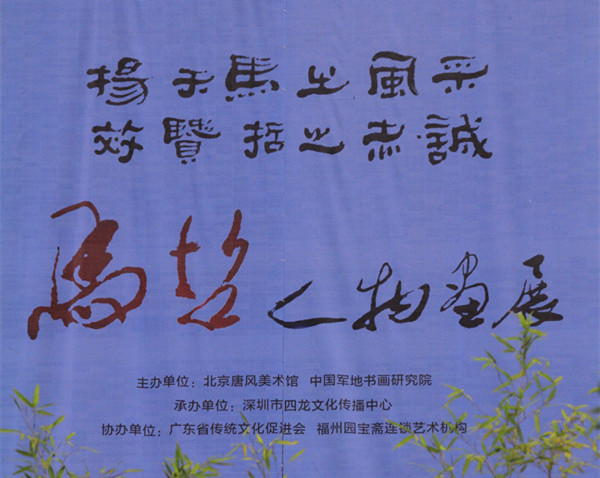 揚天馬之風采
效賢哲之赤誠
馬哲人物畫展
主办单位：北京唐风美术馆 中国军地书画研究院
承办单位：深圳市四龙文化传播中心
协办单位：广东省传统文化促进会 福州园宝斋连锁艺术机构